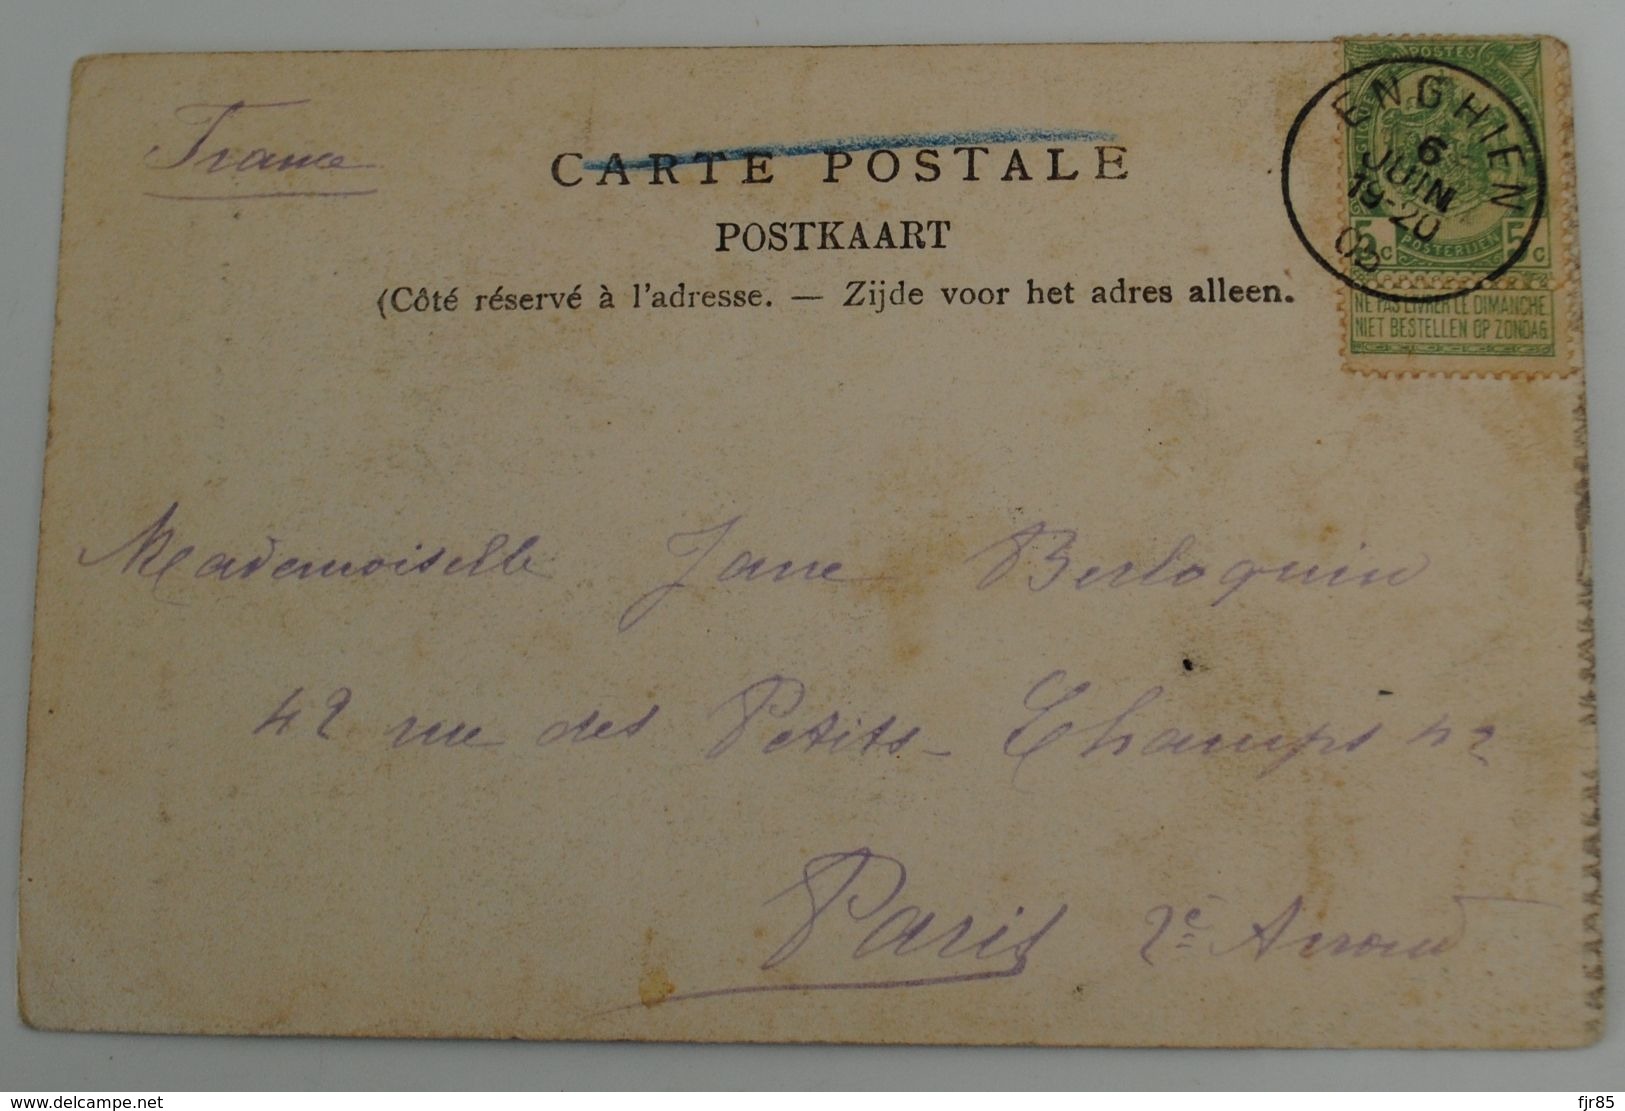 France
CARTE POSTALE
POSTKAART
(Côté réservé à l'adresse. — Zijde voor het adres alleen.
POSTES
ENGHIEN
6
JUIN
19-20
5c POSTERIJEN 5c
NE PAS LIVRER LE DIMANCHE
NIET BESTELLEN OP ZONDAG
Mademoiselle Jane Berloquin
42 rue des Petits-Champs 42
Paris 2e Arrond
www.delcampe.net
fjr85